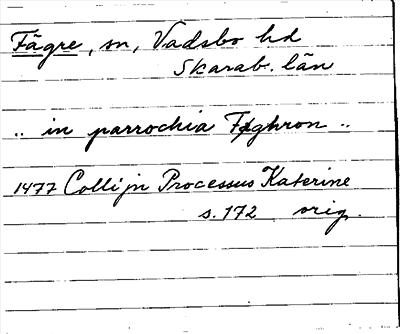 Fägre, sn, Vadsbo hd
Skarab. län
.. in parrochia Føghron ..
1477 Collijn Processus Katerine
s. 172 orig.